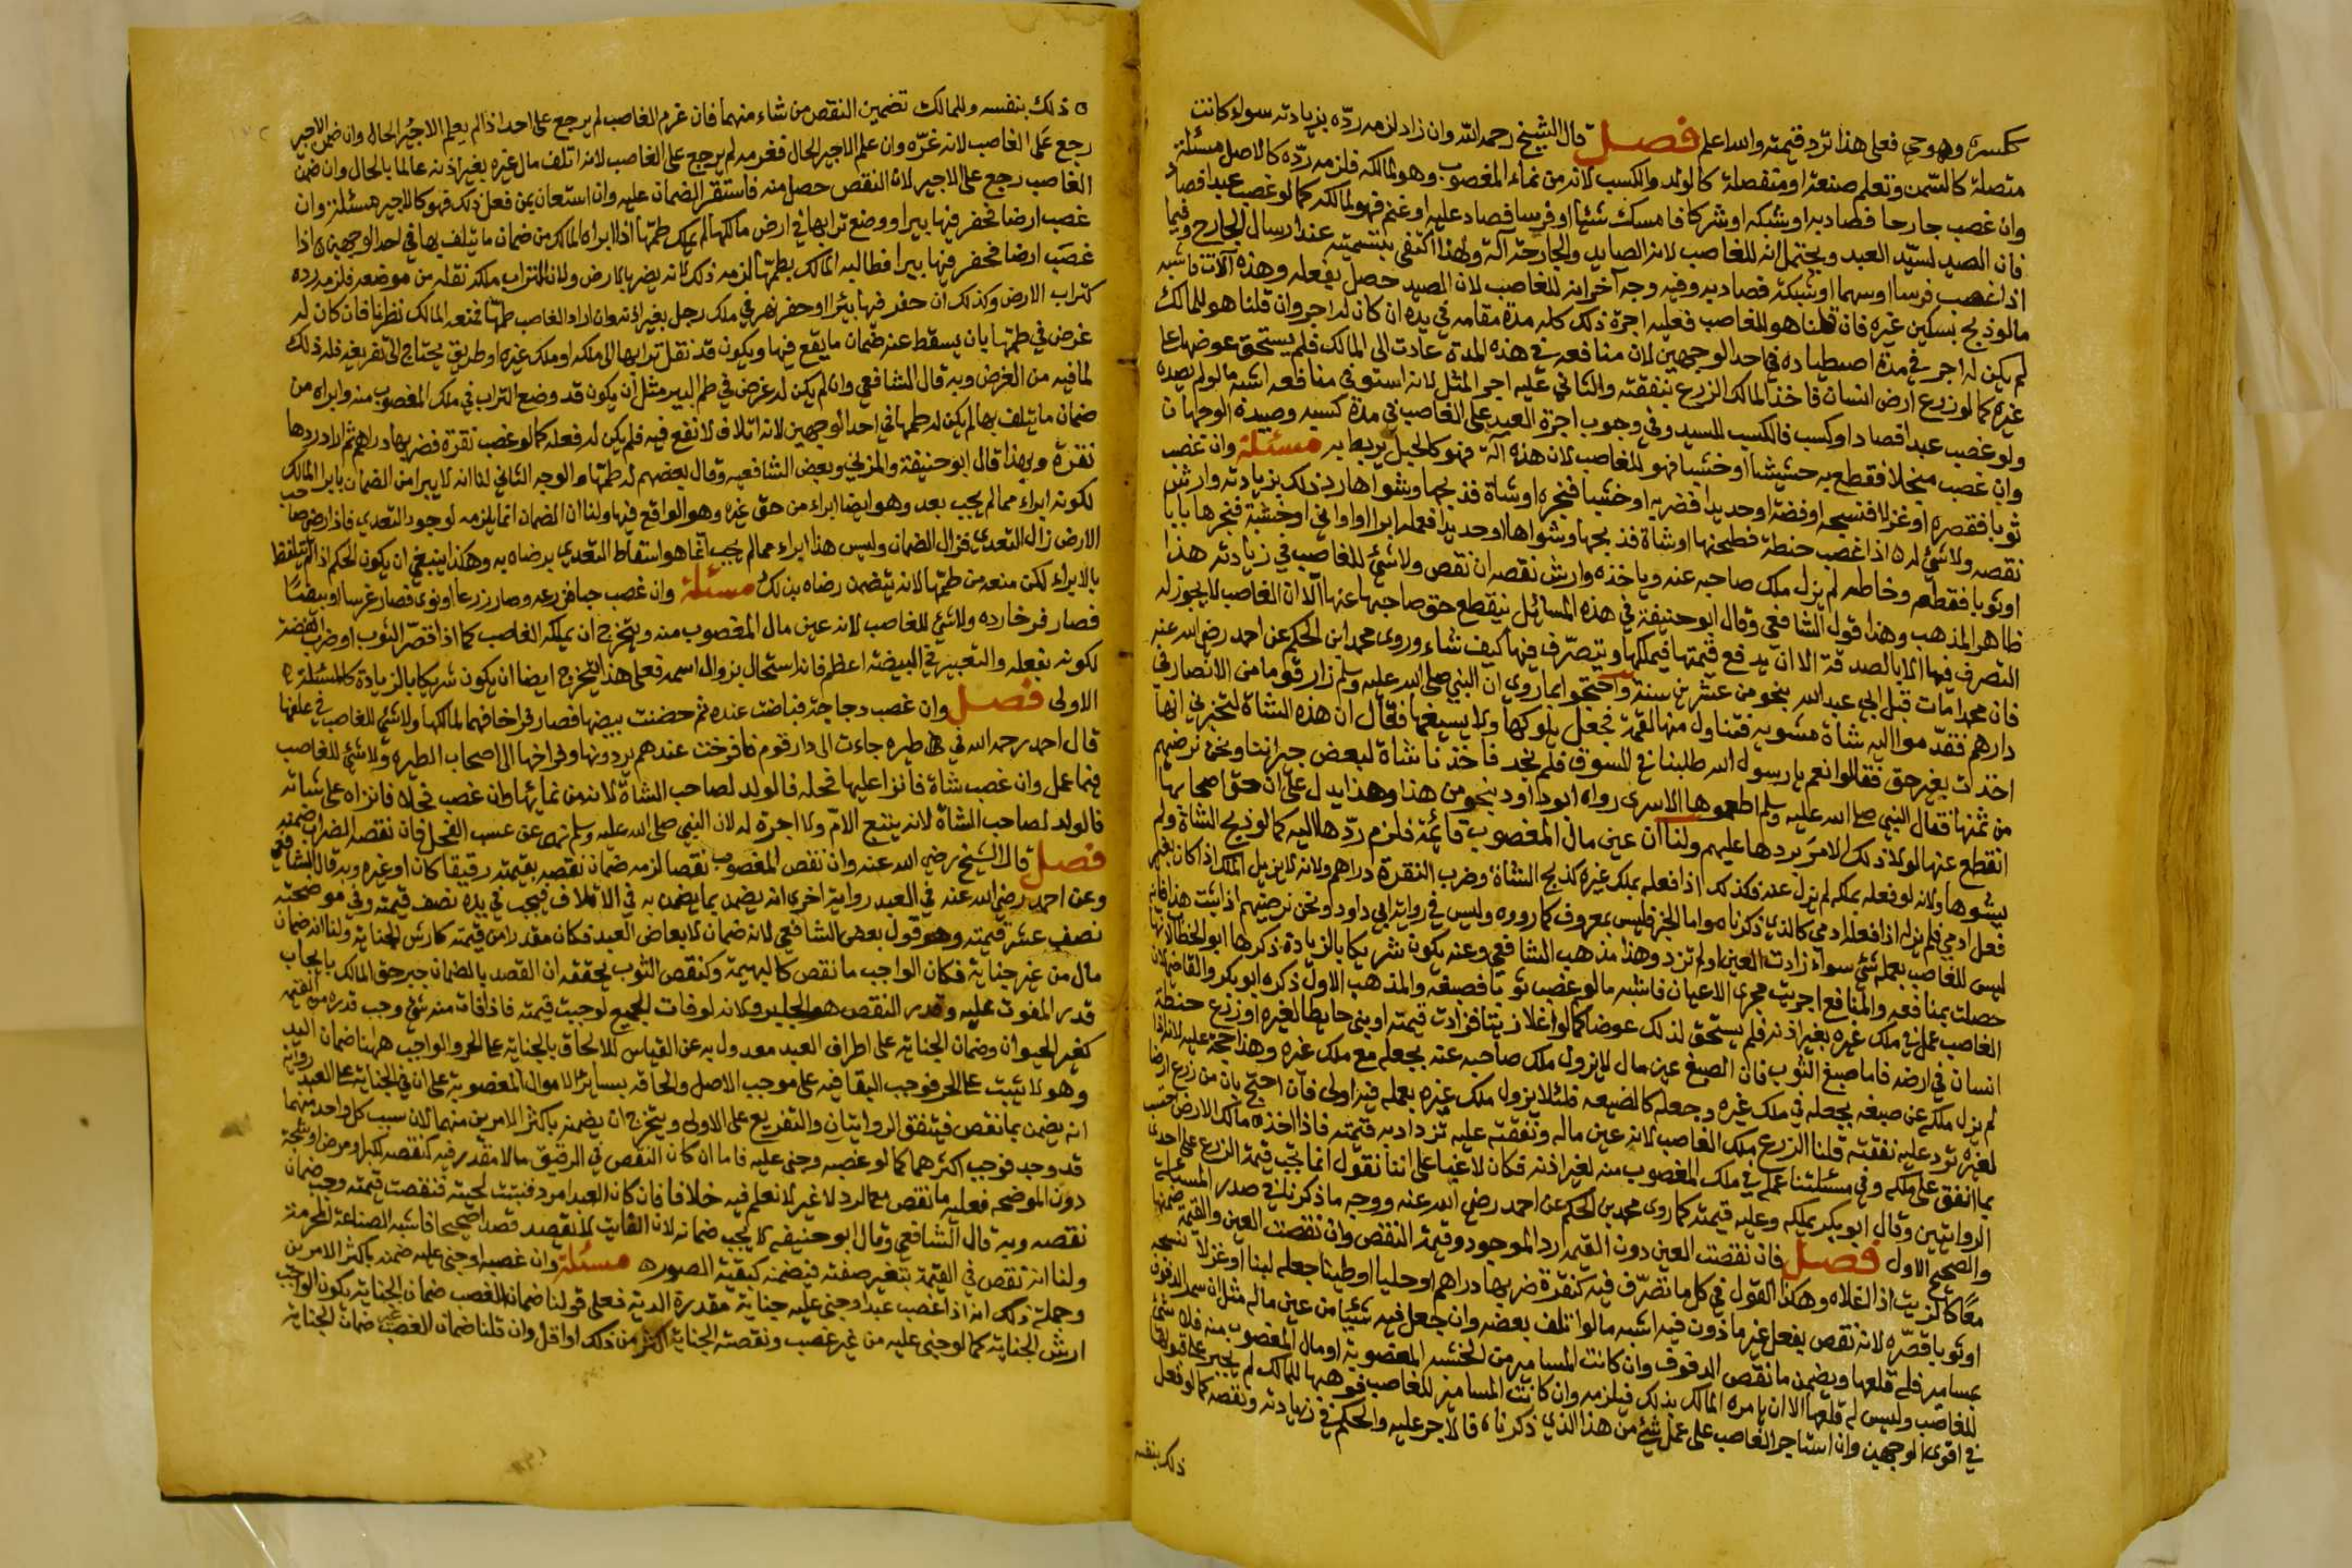 ككسره وهو حي فعلى هذا ترد قيمته والله اعلم فصل قال الشيخ رحمه الله وان زاد لزمه ردّه بزيادته سواء كانت
متصلة كالسمن وتعلم صنعة او منفصلة كالولد والكسب لانه من نماء المغصوب وهو لمالكه فلزمه ردّه كالاصل مسئلة
وان غصب جارحا فصاد به او شبكه او شركا فامسك شيئا او فرسا فصاد عليه او غنم فهو لمالكه كما لو غصب عبدا فصاد
فان الصيد لسيّد العبد ويحتمل انه للغاصب لانه الصايد والجارحة آلة ولهذا اكتفى بتسميته عند ارسال الجارح وفيما
اذا غصب فرسا او سهما او شبكة فصاد به وفيه وجه آخر انه للغاصب لان الصيد حصل بفعله وهذه آلات فاشبه
ما لو ذبح بسكين غيره فان قلنا هو للغاصب فعليه اجرة ذلك كله مدة مقامه في يده ان كان له اجر وان قلنا هو للمالك
لم يكن له اجر في مدة اصطياده في احد الوجهين لان منافعه في هذه المدة عادت الى المالك فلم يستحق عوضها على
غيره كما لو زرع ارض انسان فاخذ المالك الزرع بنفقته والثاني عليه اجر المثل لانه استوفى منافعه اشبه ما لو لم يصد
ولو غصب عبدا فصاد او كسب فالكسب للسيد وفي وجوب اجرة العبد على الغاصب في مدة كسبه وصيده الوجهان
وان غصب منجلا فقطع به حشيشا او خشبا فهو للغاصب لان هذه آلة فهو كالحبل يربط به مسئلة وان غصب
ثوبا فقصره او غزلا فنسجه او فضة او حديدا فضربه او خشبا فنجره او شاة فذبحها وشواها رد ذلك بزيادته وارش
نقصه ولا شي له اذا غصب حنطة فطحنها او شاة فذبحها وشواها او حديدا فعمله ابرا او اواني او خشبة فنجرها بابا
او ثوبا فقطعه وخاطه لم يزل ملك صاحبه عنه وياخذه وارش نقصه ان نقص ولا شئ للغاصب في زيادته هذا
ظاهر المذهب وهذا قول الشافعي وقال ابو حنيفة في هذه المسائل ينقطع حق صاحبها عنها الا ان الغاصب لا يجوز له
التصرف فيها الا بالصدقة الا ان يدفع قيمتها فيملكها ويتصرّف فيها كيف شاء وروى محمد ابن الحكم عن احمد رضي الله عنه
فان محمدا مات قبل ابي عبد الله بنحو من عشرين سنة واحتجوا بما روي ان النبي صلى الله عليه وسلم زار قوما من الانصار في
دارهم فقدموا اليه شاة مشويه فتناول منها لقمة فجعل يلوكها ولا يسيغها فقال ان هذه الشاة لتخبرني انها
اخذت بغير حق فقالوا نعم يا رسول الله طلبنا في السوق فلم نجد فاخذنا شاة لبعض جيراننا ونحن نرضيهم
من ثمنها فقال النبي صلى الله عليه وسلم اطعموها الاسرى رواه ابو داود بنحو من هذا وهذا يدل على ان حق اصحابها
انقطع عنها لولا ذلك لامر بردها عليهم ولنا ان عين مال المغصوب قائمة فلزم ردّها اليه كما لو ذبح الشاة ولم
يشوها ولانه لو فعله بملكه لم يزل عنه فكذلك اذا فعله بملك غيره كذبح الشاة وضرب النقرة دراهم ولانه لا يزيل الملك اذا كان بغير
فعل ادمي فلم يزله اذا فعله ادمي كالذي ذكرناه واما الخبر فليس بمعروف كما رووه وليس في رواية ابي داود ونحن نرضيهم اذا ثبت هذا فانه
ليس للغاصب بعمله شئ سواء زادت العين او لم تزد وهذا مذهب الشافعي وعنه يكون شريكا بالزيادة ذكرها ابو الخطاب لانها
حصلت بمنافعه والمنافع اجريت مجرى الاعيان فاشبه ما لو غصب ثوبا فصبغه والمذهب الاول ذكره ابو بكر والقاضي لان
الغاصب عمل في ملك غيره بغير اذنه فلم يستحق لذلك عوضا كما لو اغلا زيتا فزادت قيمته او بنى حايطا لغيره او زرع حنطة
انسان في ارضه فاما صبغ الثوب فان الصبغ عين مال لا يزول ملك صاحبه عنه بجعله مع ملك غيره وهذا حجة عليه لانه اذا
لم يزل ملكه عن صبغه بجعله في ملك غيره وجعله كالصفة فلئلا يزول ملك غيره بعمله فيه اولى فان احتج بان من زرع ارضا
لغيره ترد عليه نفقته قلنا الزرع ملك الغاصب لانه عين ماله ونفقته عليه تزداد به قيمته فاذا اخذه مالك الارض احتسب
بما انفق على ملكه وفي مسئلتنا عمله في ملك المغصوب منه لغير اذنه فكان لاغيا على اننا نقول انما تجب قيمة الزرع على احدى
الروايتين وقال ابو بكر يملكه وعليه قيمته كما روى محمد بن الحكم عن احمد رضي الله عنه ووجه ما ذكرناه في صدر المسئلة
والصحيح الاول فصل فان نقصت العين دون القيمه رد الموجود وقيمة النقص وان نقصت العين والقيمه ضمنها
معًا كالزيت اذا اغلاه وهكذا القول في كل ما تصرّف فيه كنقرة ضربها دراهم او حليا او طينا جعله لبنا او غزلا نسجه
او ثوبا قصّره لانه نقص بفعل غير ماذون فيه اشبه ما لو اتلف بعضه وان جعل فيه شيئا من عين ماله مثل ان سمر الدفوف
بمسامير فله قلعها ويضمن ما نقص الدفوف وان كانت المسامير من الخشبه المغصوبة او مال المغصوب منه فلا شئ
للغاصب وليس له قلعها الا ان يامره المالك بذلك فيلزمه وان كانت المسامير للغاصب فوهبها للمالك لم يجبر على قبولها
في اقوى الوجهين وان استاجر الغاصب على عمل شيئ من هذا الذي ذكرناه فالاجر عليه والحكم في زيادته ونقصه كما لو فعل
ذلك بنفسه
ذلك بنفسه وللمالك تضمين النقص من شاء منهما فان غرم الغاصب لم يرجع على احد اذا لم يعلم الاجير الحال وان ضمن الاجير
رجع على الغاصب لانه غرّه وان علم الاجير الحال فغرمه لم يرجع على الغاصب لانه اتلف مال غيره بغير اذنه عالما بالحال وان ضمن
الغاصب رجع على الاجير لان النقص حصل منه فاستقر الضمان عليه وان استعان بمن فعل ذلك فهو كالاجير مسئلة وان
غصب ارضا فحفر فيها بيرا ووضع ترابها في ارض مالكها لم يملك طمّها اذا ابراه المالك من ضمان ما يتلف بها في احد الوجهين اذا
غصب ارضا فحفر فيها بيرا فطالبه المالك بطمّها لزمه ذلك لانه يضر بالارض ولان التراب ملكه نقله من موضعه فلزمه رده
كتراب الارض وكذلك ان حفر فيها بئرا او حفر نهر في ملك رجل بغير اذنه وان اراد الغاصب طمها فمنعه المالك نظرنا فان كان له
غرض في طمها بان يسقط عنه ضمان ما يقع فيها ويكون قد نقل ترابها الى ملكه او ملك غيره او طريق يحتاج الى تفريغه فله ذلك
لما فيه من الغرض وبه قال الشافعي وان لم يكن له غرض في طم البير مثل ان يكون قد وضع التراب في ملك المغصوب منه وابراه من
ضمان ما يتلف بها لم يكن له طمها في احد الوجهين لانه اتلاف لا نفع فيه فلم يكن له فعله كما لو غصب نقرة فضربها دراهم ثم اراد ردها
نقرة وبهذا قال ابو حنيفة والمزني وبعض الشافعيه وقال بعضهم له طمها وهو الوجه الثاني لنا انه لا يبرا من الضمان بابرا المالك
لكونه ابراء مما لم يجب بعد وهو ايضا ابراء من حق غيره وهو الواقع فيها ولنا ان الضمان انما يلزمه لوجود التعدي فاذا رضي صاحب
الارض زال التعدي فزال الضمان وليس هذا ابراء مما لم يجب انما هو اسقاط التعدي برضاه به وهكذا ينبغي ان يكون الحكم اذا لم يتلفظ
بالابراء لكن منعه من طمّها لانه يتضمن رضاه بذلك مسئلة وان غصب حبا فزرعه وصار زرعا او نوى فصار غرسا او بيضًا
فصار فرخا رده ولا شئ للغاصب لانه عين مال المغصوب منه ويتخرج ان يملكه الغاصب كما اذا قصّر الثوب او ضرب الفضة
لكونه بفعله والتغيير في البيضة اعظم فانه استحال بزوال اسمه فعلى هذا يتخرج ايضا ان يكون شريكا بالزيادة كالمسئلة
الاولى فصل وان غصب دجاجة فباضت عنده ثم حضنت بيضها فصار فراخا فهما لمالكها ولا شئ للغاصب في علفها
قال احمد رحمه الله في طيره جاءت الى دار قوم فافرخت عندهم يردونها وفراخها الى اصحاب الطيره ولا شئ للغاصب
فيما عمل وان غصب شاة فانزا عليها فحله فالولد لصاحب الشاة لانه من نمائها وان غصب فحلا فانزاه على شاته
فالولد لصاحب الشاة لانه يتبع الامّ ولا اجرة له لان النبي صلى الله عليه وسلم نهى عن عسب الفحل فان نقصه الضراب ضمنه
فصل قال الشيخ رضي الله عنه وان نقص المغصوب نقصا لزمه ضمان نقصه بقيمته رقيقا كان او غيره وبه قال الشافعي
وعن احمد رضي الله عنه في العبد رواية اخرى انه يضمن بما يضمن به في الاتلاف فيجب في يده نصف قيمته وفي موضحته
نصف عشر قيمته وهو قول بعض الشافعي لانه ضمان لابعاض العبد فكان مقدرا من قيمته كارش الجناية ولنا انه ضمان
مال من غير جناية فكان الواجب ما نقص كالبهيمة وكنقص الثوب يحققه ان القصد بالضمان جبر حق المالك بايجاب
قدر المفوت عليه وقدر النقص هو الجابر ولانه لو فات الجميع لوجبت قيمته فاذا فات منه شئ وجب قدره من القيمه
كغير الحيوان وضمان الجناية على اطراف العبد معدول به عن القياس للالحاق بالجناية على الحر والواجب ههنا ضمان اليد
وهو لا تثبت على الحر فوجب البقا فيه على موجب الاصل والحاقه بسائر الاموال المغصوبة على ان في الجناية على العبد رواية
انه يضمن بما نقص فيتفق الروايتان والتفريع على الاولى ويتخرج ان يضمنه باكثر الامرين منهما لان سبب كل واحد منهما
قد وجد فوجب اكثرهما كما لو غصبه وجنى عليه فاما ان كان النقص في الرقيق مما لا مقدر فيه كنقصه لكبر او مرض او شجة
دون الموضحه فعليه ما نقص مع الرد لا غير لا نعلم فيه خلافا فان كان العبد امرد فنبتت لحيته فنقصت قيمته وجب ضمان
نقصه وبه قال الشافعي وقال ابو حنيفه لا يجب ضمانه لان الفايت لا يقصد قصدا صحيحا فاشبه الصناعة المحرمة
ولنا انه نقص في القيمة بتغير صفته فيضمنه كبقية الصوره مسئلة وان غصبه وجنى عليه ضمنه باكثر الامرين
وجملة ذلك انه اذا غصب عبدا وجنى عليه جناية مقدرة الدية فعلى قولنا ضمان الغصب ضمان الجناية يكون الواجب
ارش الجناية كما لو جنى عليه من غير غصب ونقصته الجناية اكثر من ذلك او اقل وان قلنا ضمان الغصب غير ضمان الجناية